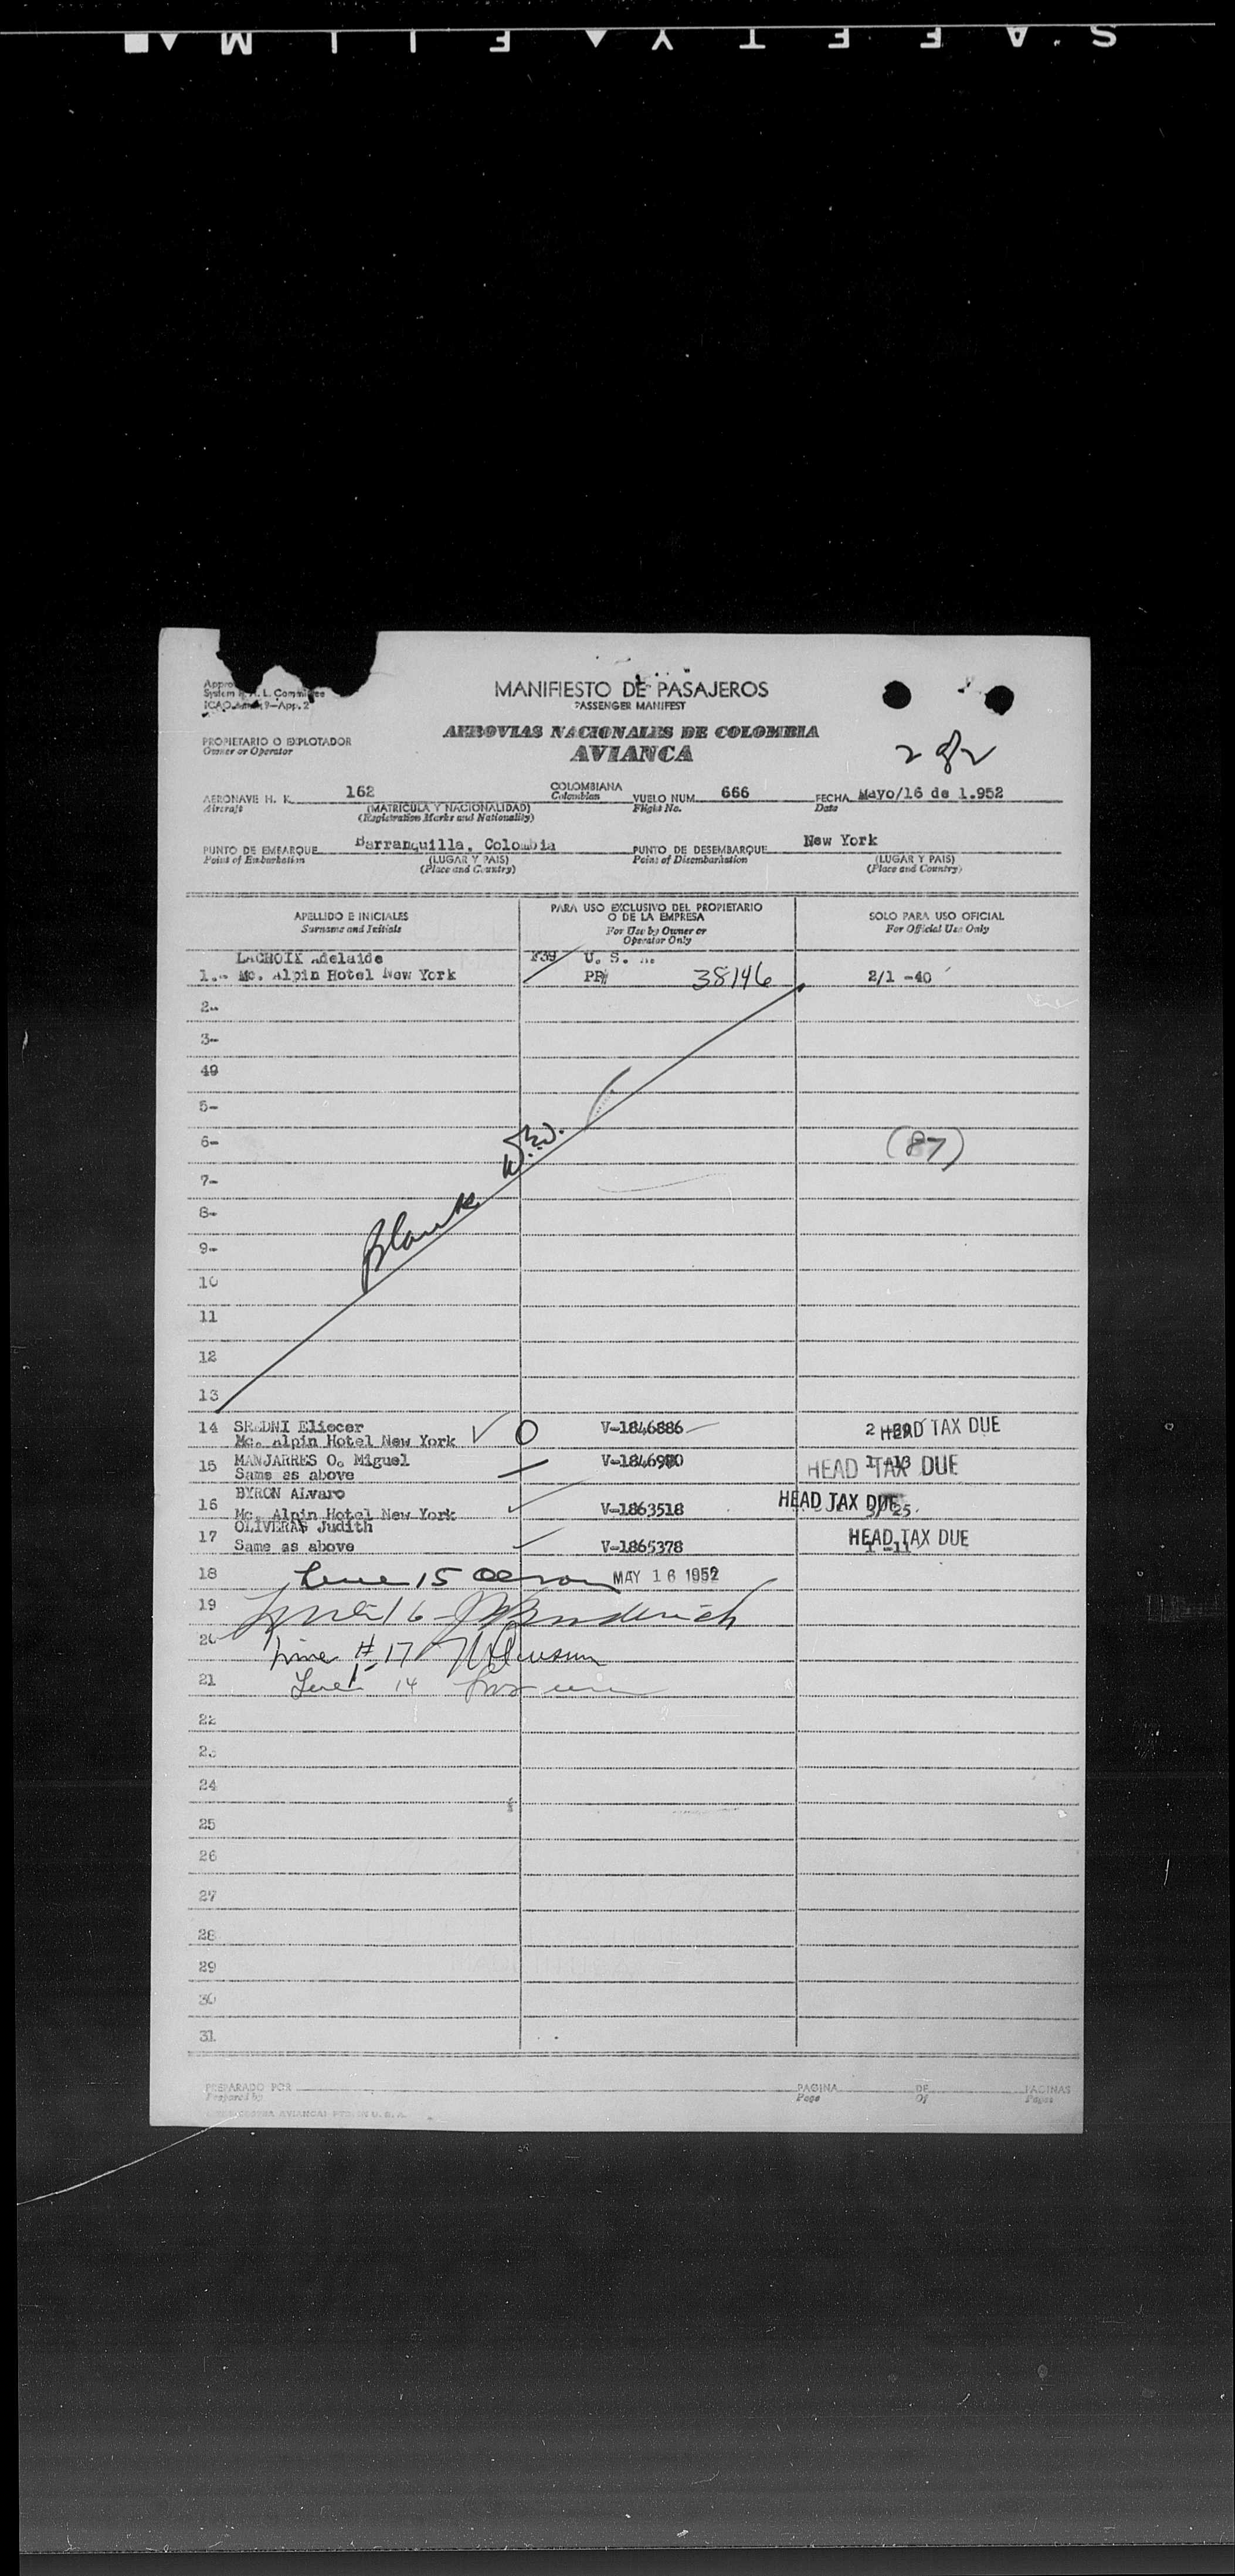 SAFETY▲FILM
MANIFIESTO DE PASAJEROS
PASSENGER MANIFEST
System L. Committee
ICAO 9—App. 2
AEROVIAS NACIONALES DE COLOMBIA
AVIANCA
PROPIETARIO O EXPLOTADOR
Owner or Operator
2 of 2
AERONAVE H. K. 162 COLOMBIANA VUELO NUM. 666 FECHA Mayo/16 de 1.952
Aircraft (MATRICULA Y NACIONALIDAD) Colombian Flight No. Date
(Registration Marks and Nationality)
PUNTO DE EMBARQUE Barranquilla, Colombia PUNTO DE DESEMBARQUE New York
Point of Embarkation (LUGAR Y PAIS) Point of Disembarkation (LUGAR Y PAIS)
(Place and Country) (Place and Country)
APELLIDO E INICIALES PARA USO EXCLUSIVO DEL PROPIETARIO O DE LA EMPRESA SOLO PARA USO OFICIAL
Surname and Initials For Use by Owner or Operator Only For Official Use Only
LACROIX Adelaide F39 U. S. A.
1.- Mc. Alpin Hotel New York PP# 38146 2/1 -40
2-
3-
49
5-
6- (87)
7-
8-
9-
Blank
10
11
12
13
14 SREDNI Eliecer V-1846886 2 HEAD TAX DUE
Mc. Alpin Hotel New York
15 MANJARRES O. Miguel V-1846980 HEAD TAX DUE
Same as above
BYRON Alvaro HEAD TAX DUE
16 Mc. Alpin Hotel New York V-1863518 25.
OLIVERAS Judith HEAD TAX DUE
17 Same as above V-1865378 1 -11
18 Line 15 MAY 16 1952
19 Line 16
20 Line #17
21 Line 14
22
23
24
25
26
27
28
29
30
31
PREPARADO POR PAGINA DE PAGINAS
Prepared by Page Of Pages